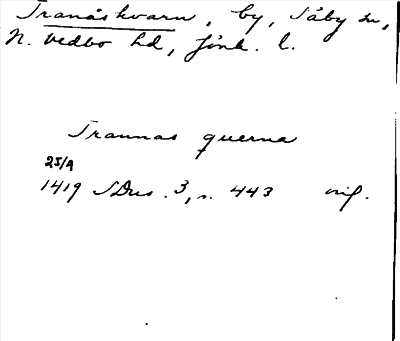 Tranåskvarn, by, Säby sn,
N. Vedbo hd, Jönk. l.
Trannas querna
25/9
1419 SDns. 3, s. 443 orig.